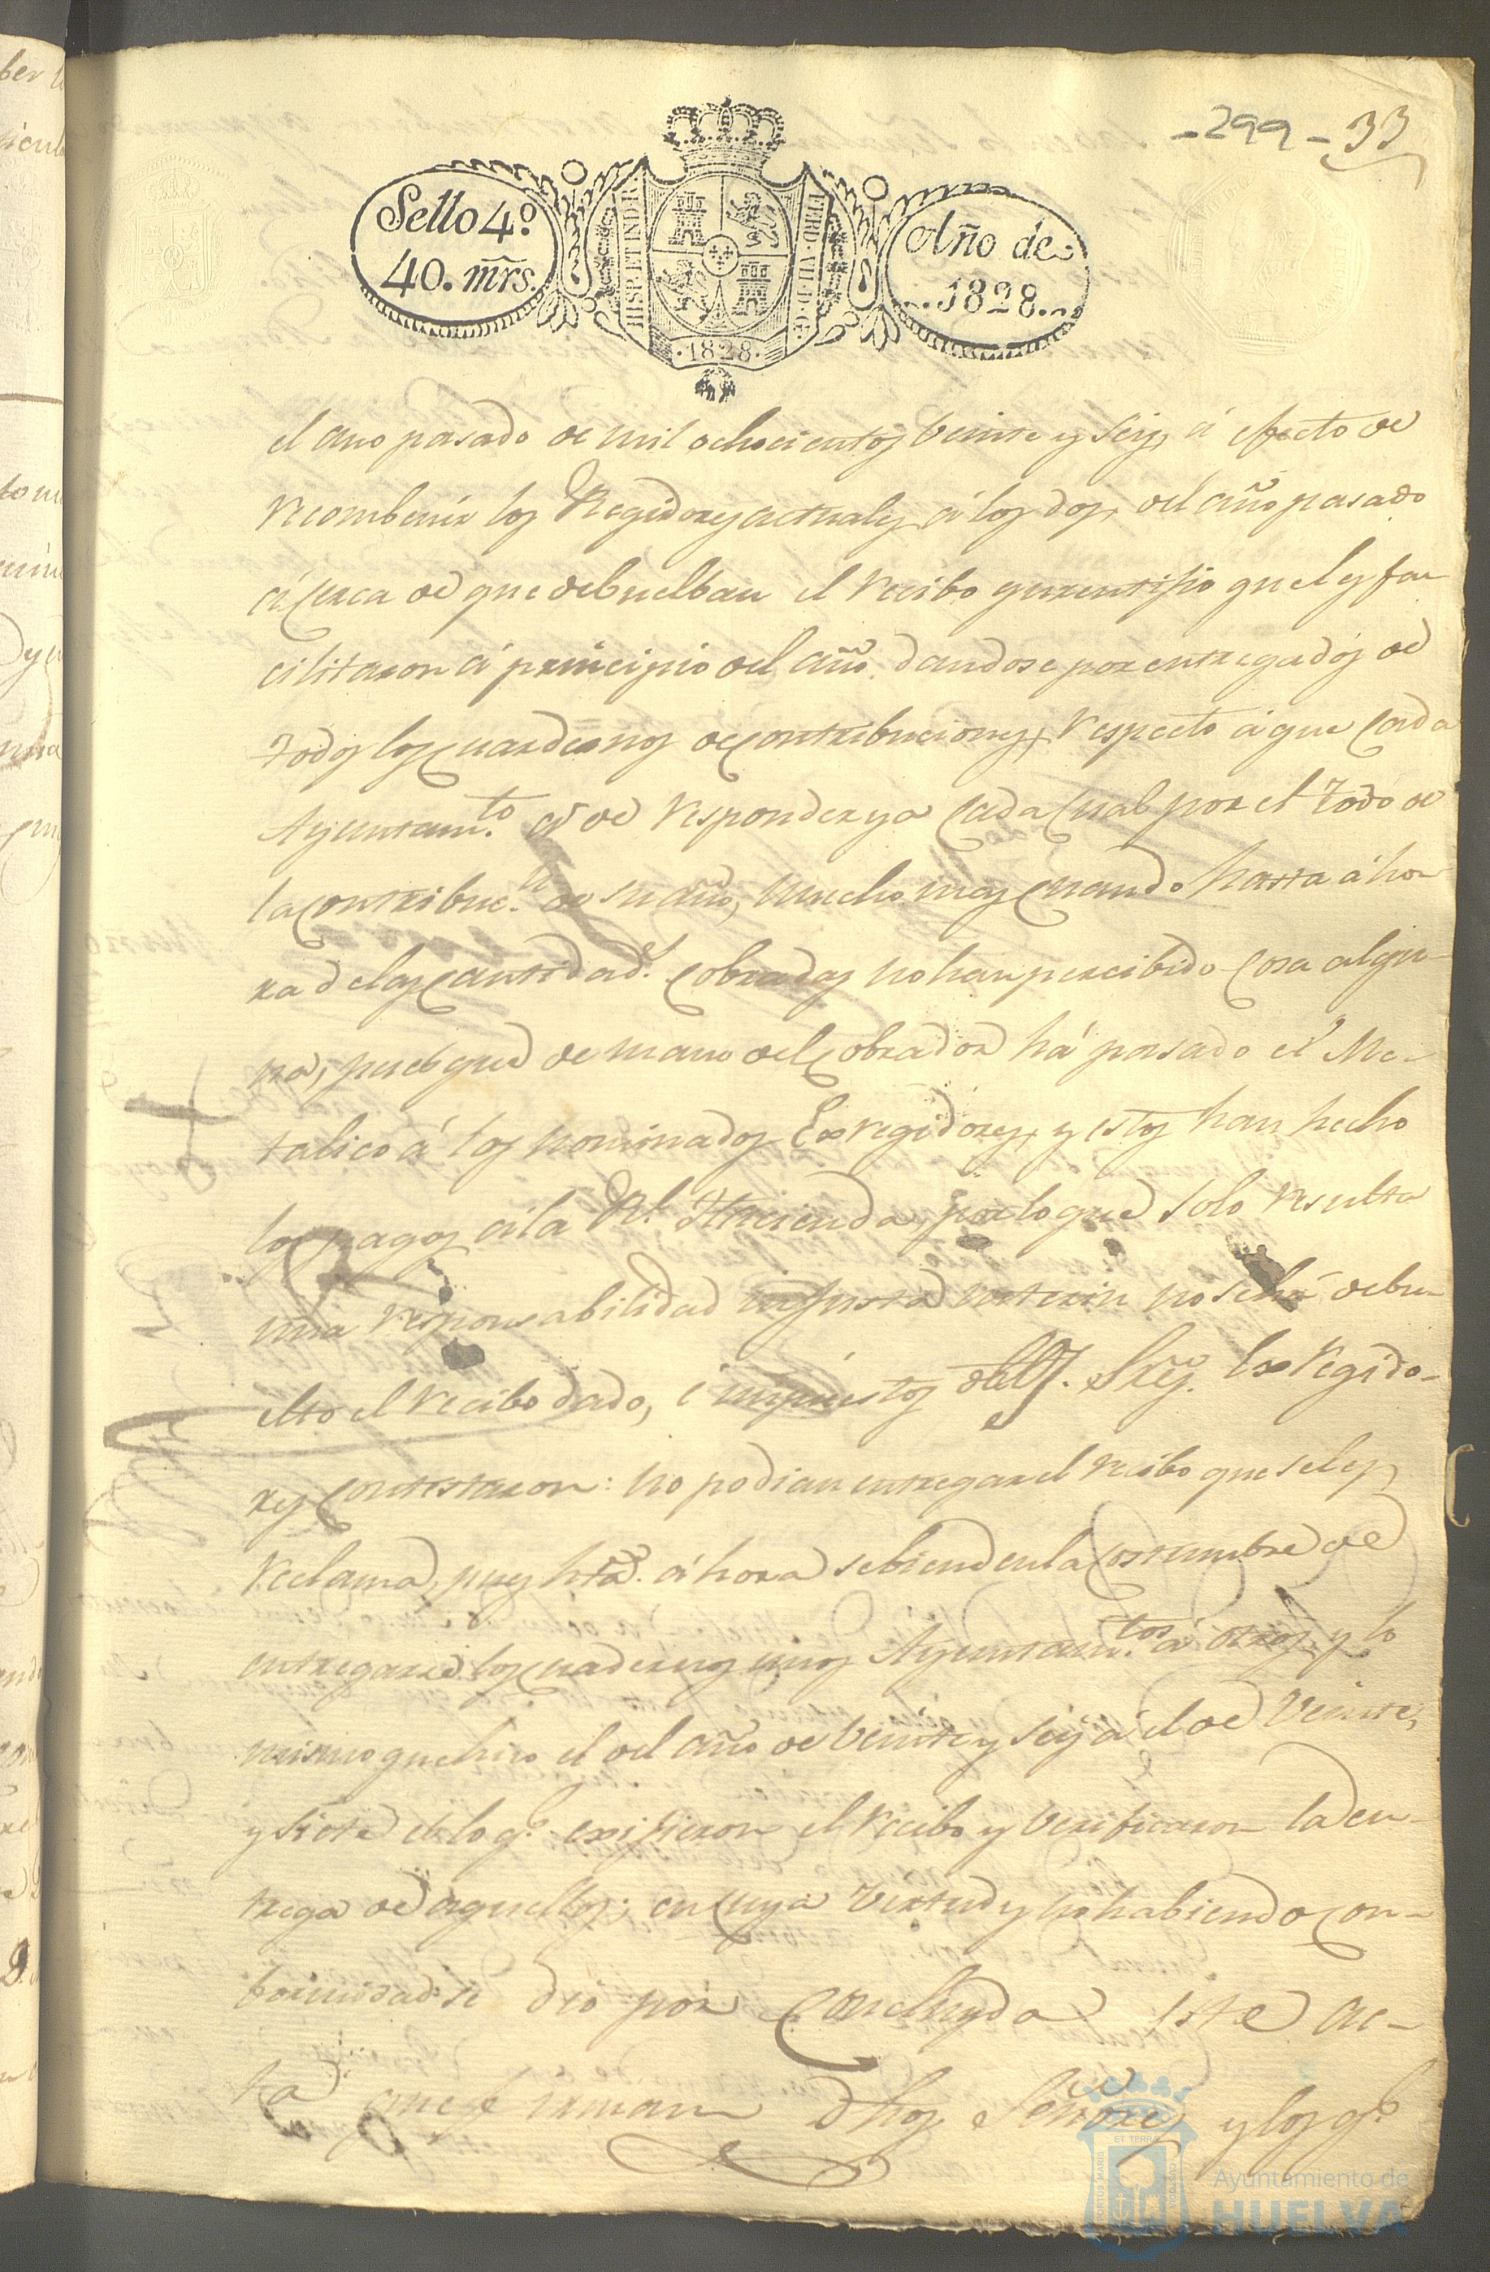 -299- 33
Sello 4º
40. mrs.
HISP. ET IND. R.
FERD. VII. D. G.
·1828·
Año de
1828
el año pasado de mil ochocientos veinte y seis, á efecto de
recombenir los Regidores actuales á los dos, del año pasado
ácerca de que debuelban el recibo guarentisio que les fa-
cilitaron á principio del año, dandose por entregados de
todos los cuardernos de contribuciones, respecto á que cada
Ayuntam.to es de responder ya cada cual por el todo de
la contribuc.n de su año, mucho mas cuando hasta áho-
ra de las cantidad.s cobradas no han percibido cosa algu-
na, pues que de mano del cobrador há pasado el Me-
talico á los nominados Exregidores, y estos han hecho
los pagos á la Rl. Hacienda, por lo que solo resulta
una responsabilidad injusta interin no se há debu-
elto el recibo dado, é impuestos dhos. Sres. Exregido-
res contestaron: no podian entregar el recibo que se les
reclama, pues hta. áhora se biend en la costumbre de
entregarse los cuadernos unos Ayuntam.tos á otros, y lo
mismo que hizo el del año de veinte y seis á el de veinte,
y siete de lo q.e exijieron el recibo y verificaron la en-
trega de aquellos; en cuya virtud y no habiendo con-
formidad se dio por concluyda este ac-
ta que firman dhos Señores y los q.e
Ayuntamiento de
HUELVA